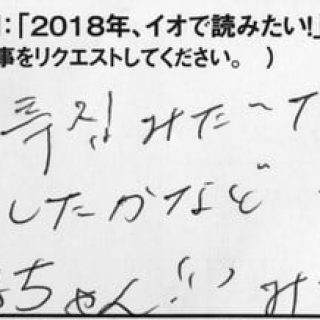 :「2018年、イオで読みたい!」
事をリクエストしてください。 )
みた〜
したかなど
ちゃん!! み